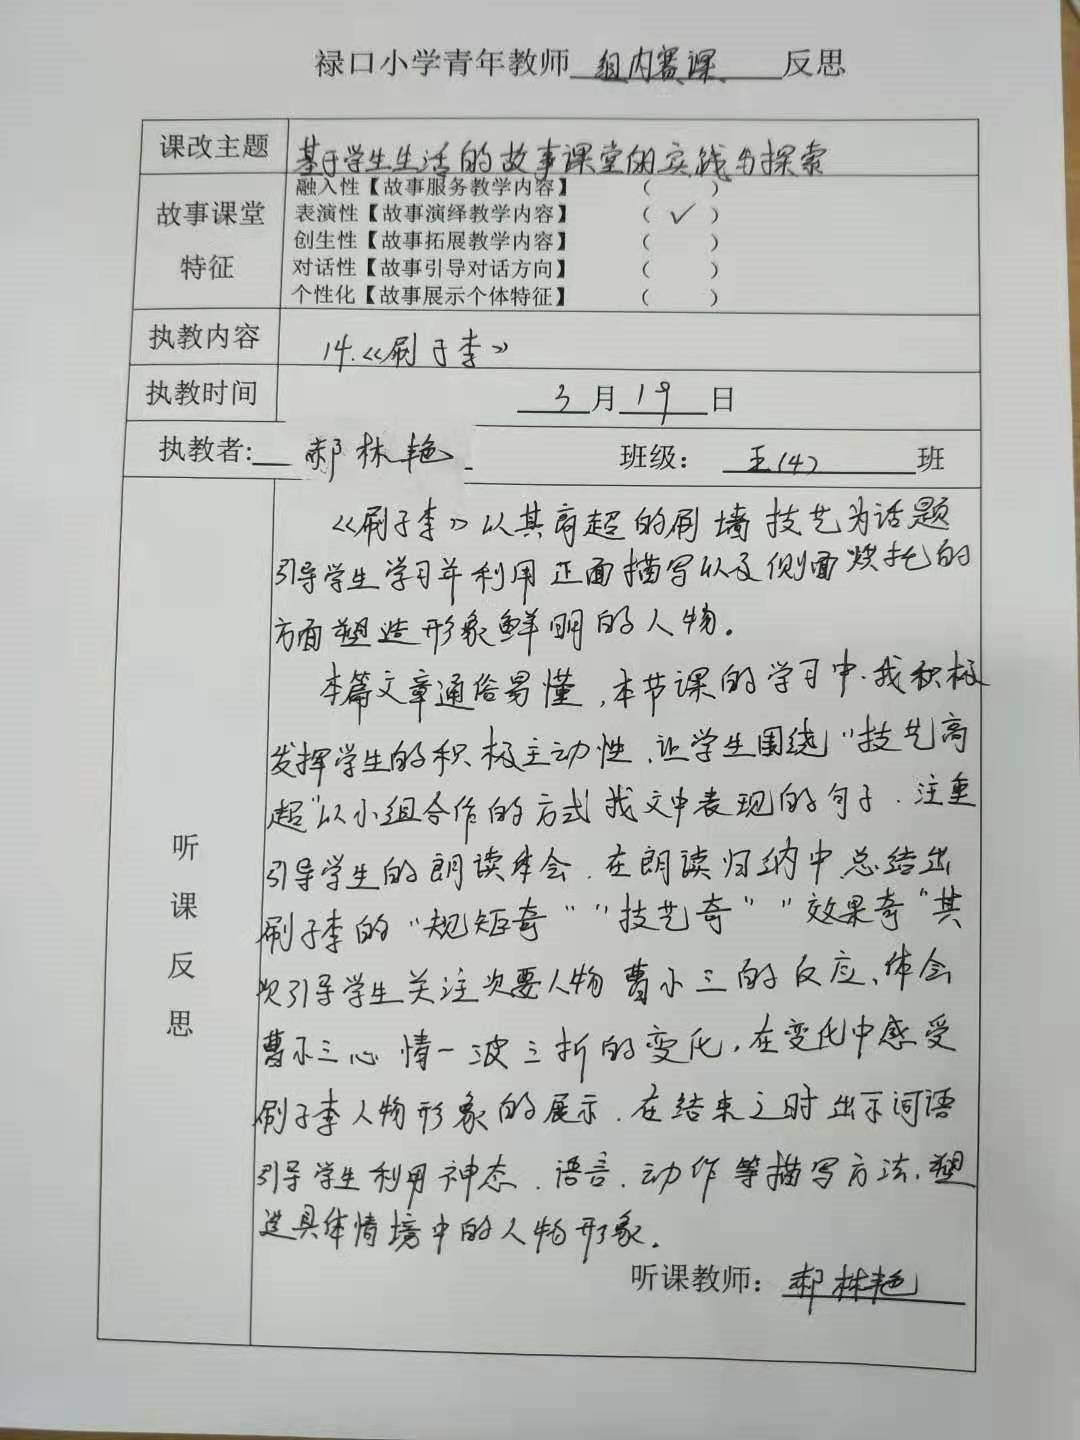 禄口小学青年教师 组内赛课 反思
课改主题 基于学生生活的故事课堂的实践与探索
故事课堂特征
融入性【故事服务教学内容】 （ ）
表演性【故事演绎教学内容】 （ ✓ ）
创生性【故事拓展教学内容】 （ ）
对话性【故事引导对话方向】 （ ）
个性化【故事展示个体特征】 （ ）
执教内容 14.《刷子李》
执教时间 3月19日
执教者: 郝林艳 班级： 五（4） 班
听课反思
《刷子李》以其高超的刷墙技艺为话题
引导学生学习并利用正面描写以及侧面烘托的
方面塑造形象鲜明的人物。
本篇文章通俗易懂，本节课的学习中.我积极
发挥学生的积极主动性.让学生围绕"技艺高
超"以小组合作的方式找文中表现的句子.注重
引导学生的朗读体会.在朗读归纳中总结出
刷子李的"规矩奇""技艺奇""效果奇"其
次引导学生关注次要人物曹小三的反应、体会
曹小三心情一波三折的变化,在变化中感受
刷子李人物形象的展示.在结束之时出示词语
引导学生利用神态.语言.动作等描写方法,塑
造具体情境中的人物形象。
听课教师：郝林艳